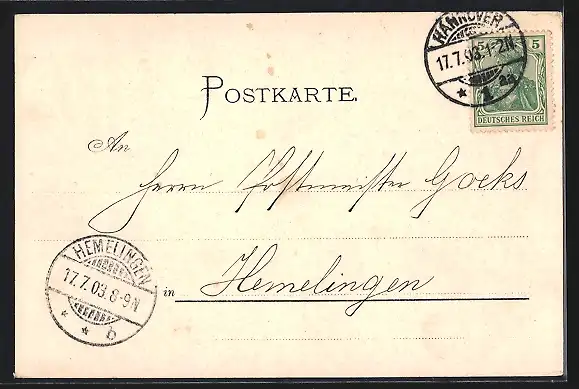 HANNOVER 1
17.7.03.1-2N
1 aa
5
DEUTSCHES REICH
POSTKARTE.
An
Herrn Postmeister Goeks
HEMELINGEN
17.7.03.8-9N
b
in Hemelingen